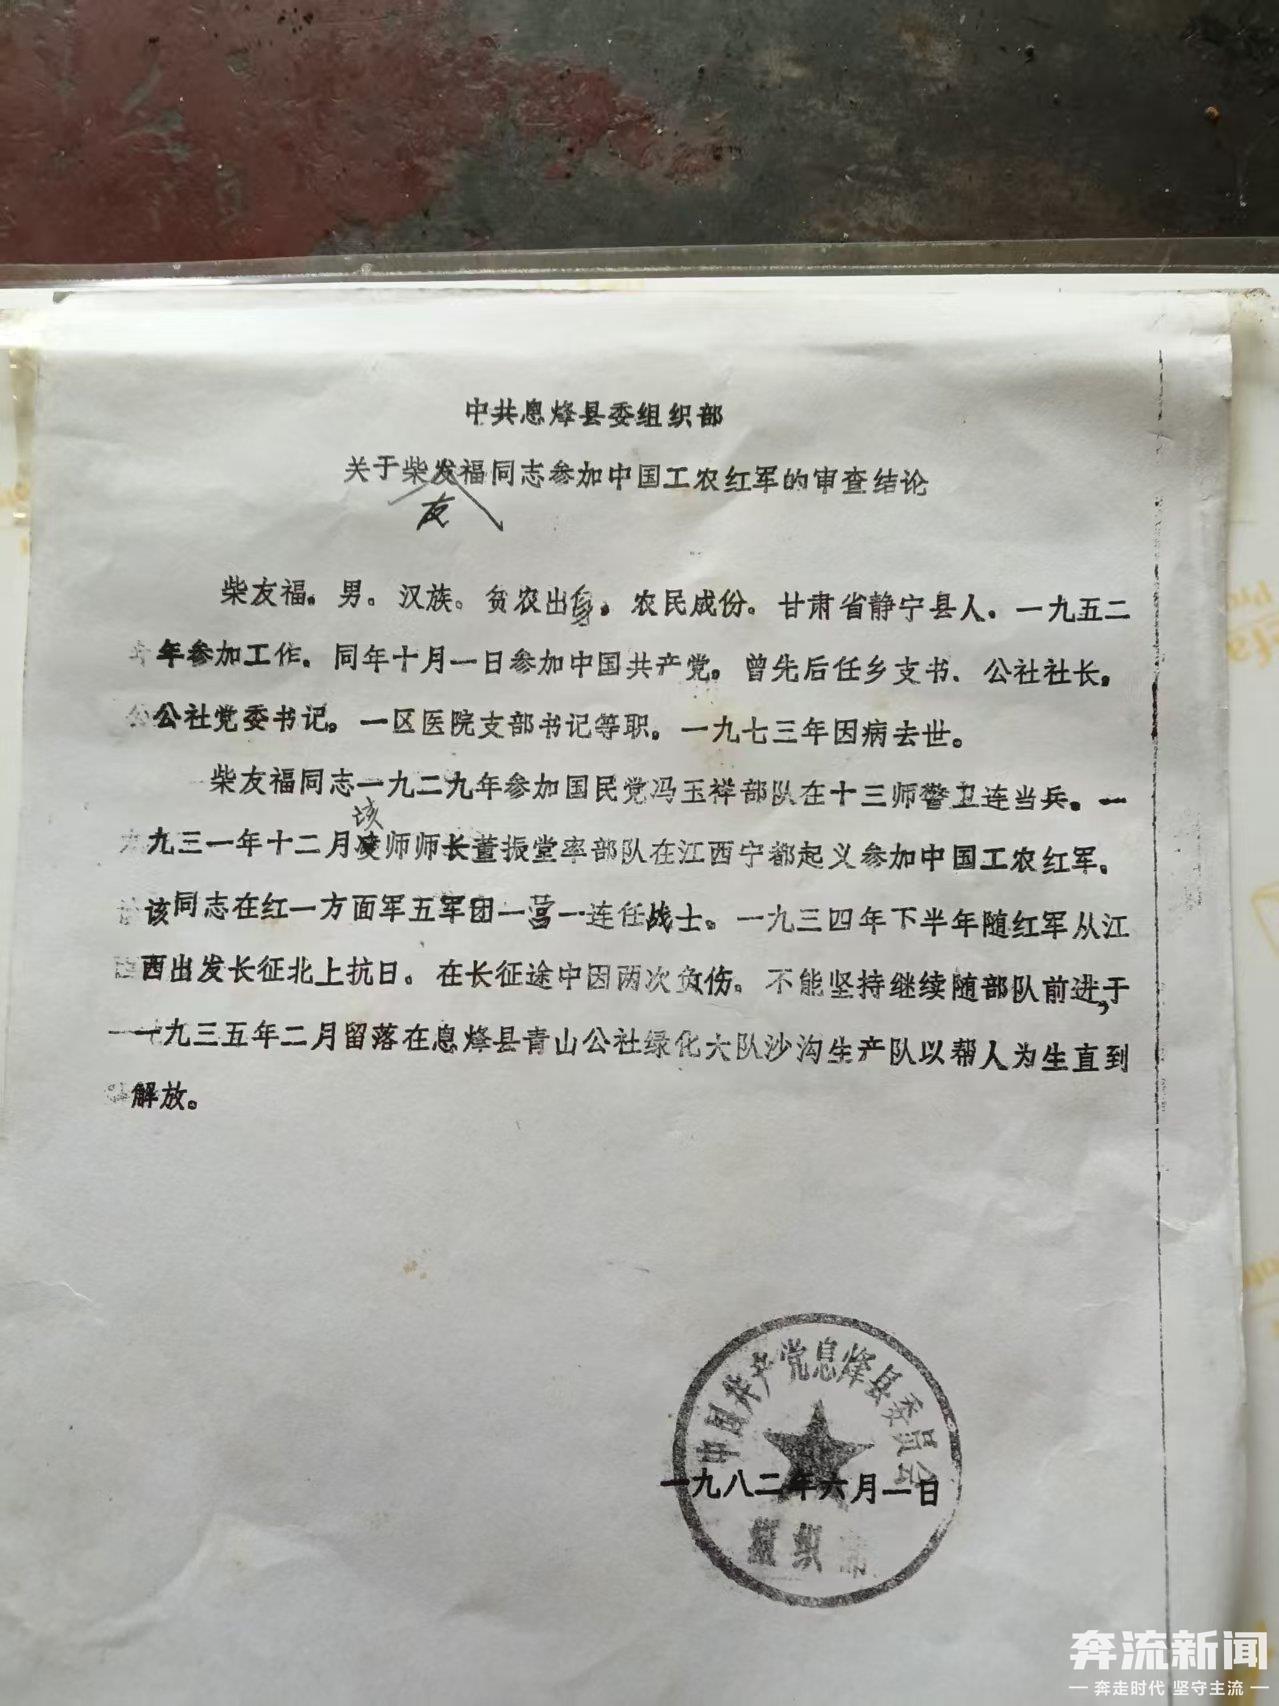 中共息烽县委组织部
关于柴发福同志参加中国工农红军的审查结论
友
柴友福。男。汉族。贫农出身。农民成份。甘肃省静宁县人。一九五二
年参加工作。同年十月一日参加中国共产党。曾先后任乡支书、公社社长。
公社党委书记。一区医院支部书记等职。一九七三年因病去世。
柴友福同志一九二九年参加国民党冯玉祥部队在十三师警卫连当兵。一
该
九三一年十二月师师长董振堂率部队在江西宁都起义参加中国工农红军。
该同志在红一方面军五军团一营一连任战士。一九三四年下半年随红军从江
西出发长征北上抗日。在长征途中因两次负伤。不能坚持继续随部队前进,于
一九三五年二月留落在息烽县青山公社绿化大队沙沟生产队以帮人为生直到
解放。
中国共产党息烽县委员会
一九八二年六月一日
组织部
奔流新闻
奔走时代 坚守主流